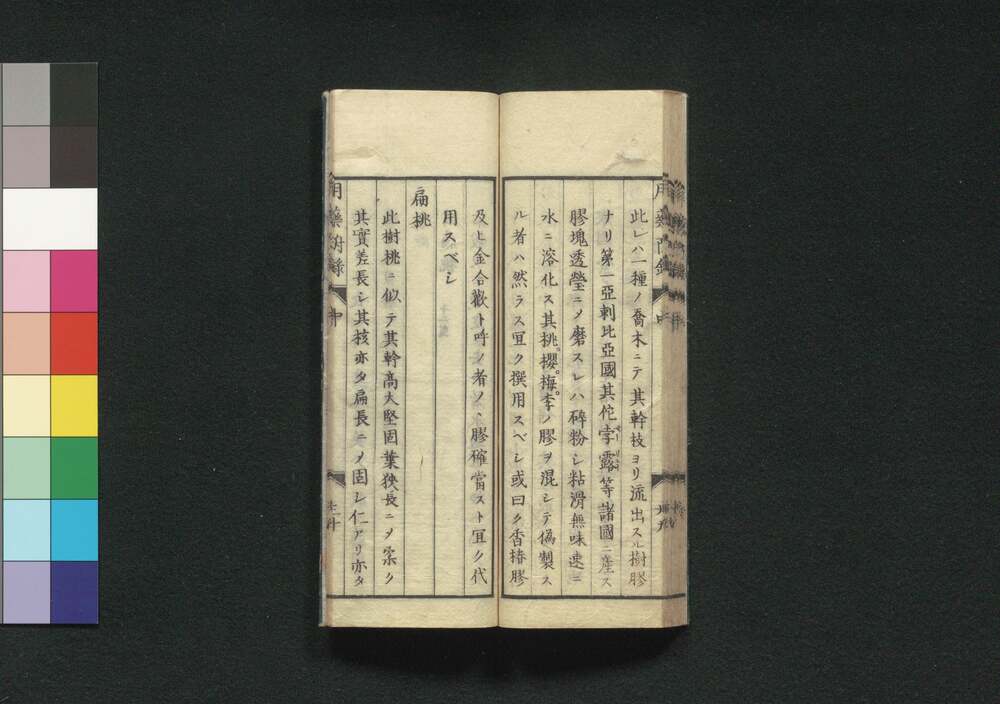 此レハ一種ノ喬木ニテ其幹枝ヨリ流出スル樹膠
ナリ第一亞剌比亞國其佗孛露等諸國ニ産ス
膠塊透瑩ニメ磨スレハ碎粉シ粘滑無味速ニ
水ニ溶化ス其桃。櫻。梅。李ノ膠ヲ混シテ偽製ス
ル者ハ然ラス宜ク撰用スベシ或曰ク香椿膠
及ヒ金合歡ト呼ノ者ノ膠確當スト宜ク代
用スベシ
扁桃
此樹桃ニ似テ其幹高大堅固葉狹長ニメ柔ク
其實差長シ其核亦タ扁長ニメ固シ仁アリ亦タ
用藥附錄